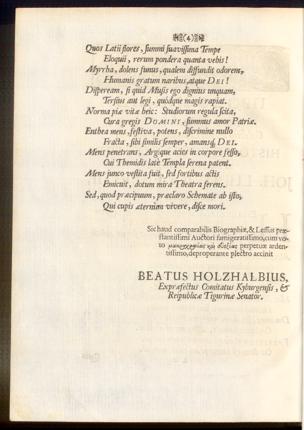 (4)
Quos Latii flores, summi suavissima Tempe
Eloquii, rerum pondera quanta vehis!
Myrrha, dolens funus, qualem diffundit odorem,
Humanis gratum naribus, atque DEI!
Dispeream, si quid Musis ego dignius unquam,
Tersius aut legi, quodque magis rapiat.
Norma piæ vitæ heic: Studiorum regula scita,
Cura gregis DOMINI, summus amor Patriæ.
Enthea mens, festiva, potens, discrimine nullo
Fracta, sibi similis semper, amansq́; DEI.
Mens penetrans, Argique acies in corpore fesso,
Cui Themidis late Templa serena patent.
Mens junco vestita fuit, sed fortibus actis
Emicuit, dotum mira Theatra ferens.
Sed, quod præcipuum, præclaro Schemate ab isto,
Qui cupis æternùm vivere, disce mori.
Sic haud comparabilis Biographiæ, & Lessus præ-
stantissimi Auctori famigeratissimo, cum vo-
to μακροημερίας καὶ εὐεξίας perpetuæ arden-
tissimo, deproperante plectro accinit
BEATUS HOLZHALBIUS,
Expræfectus Comitatus Kyburgensis, &
Reipublicæ Tigurinæ Senator.